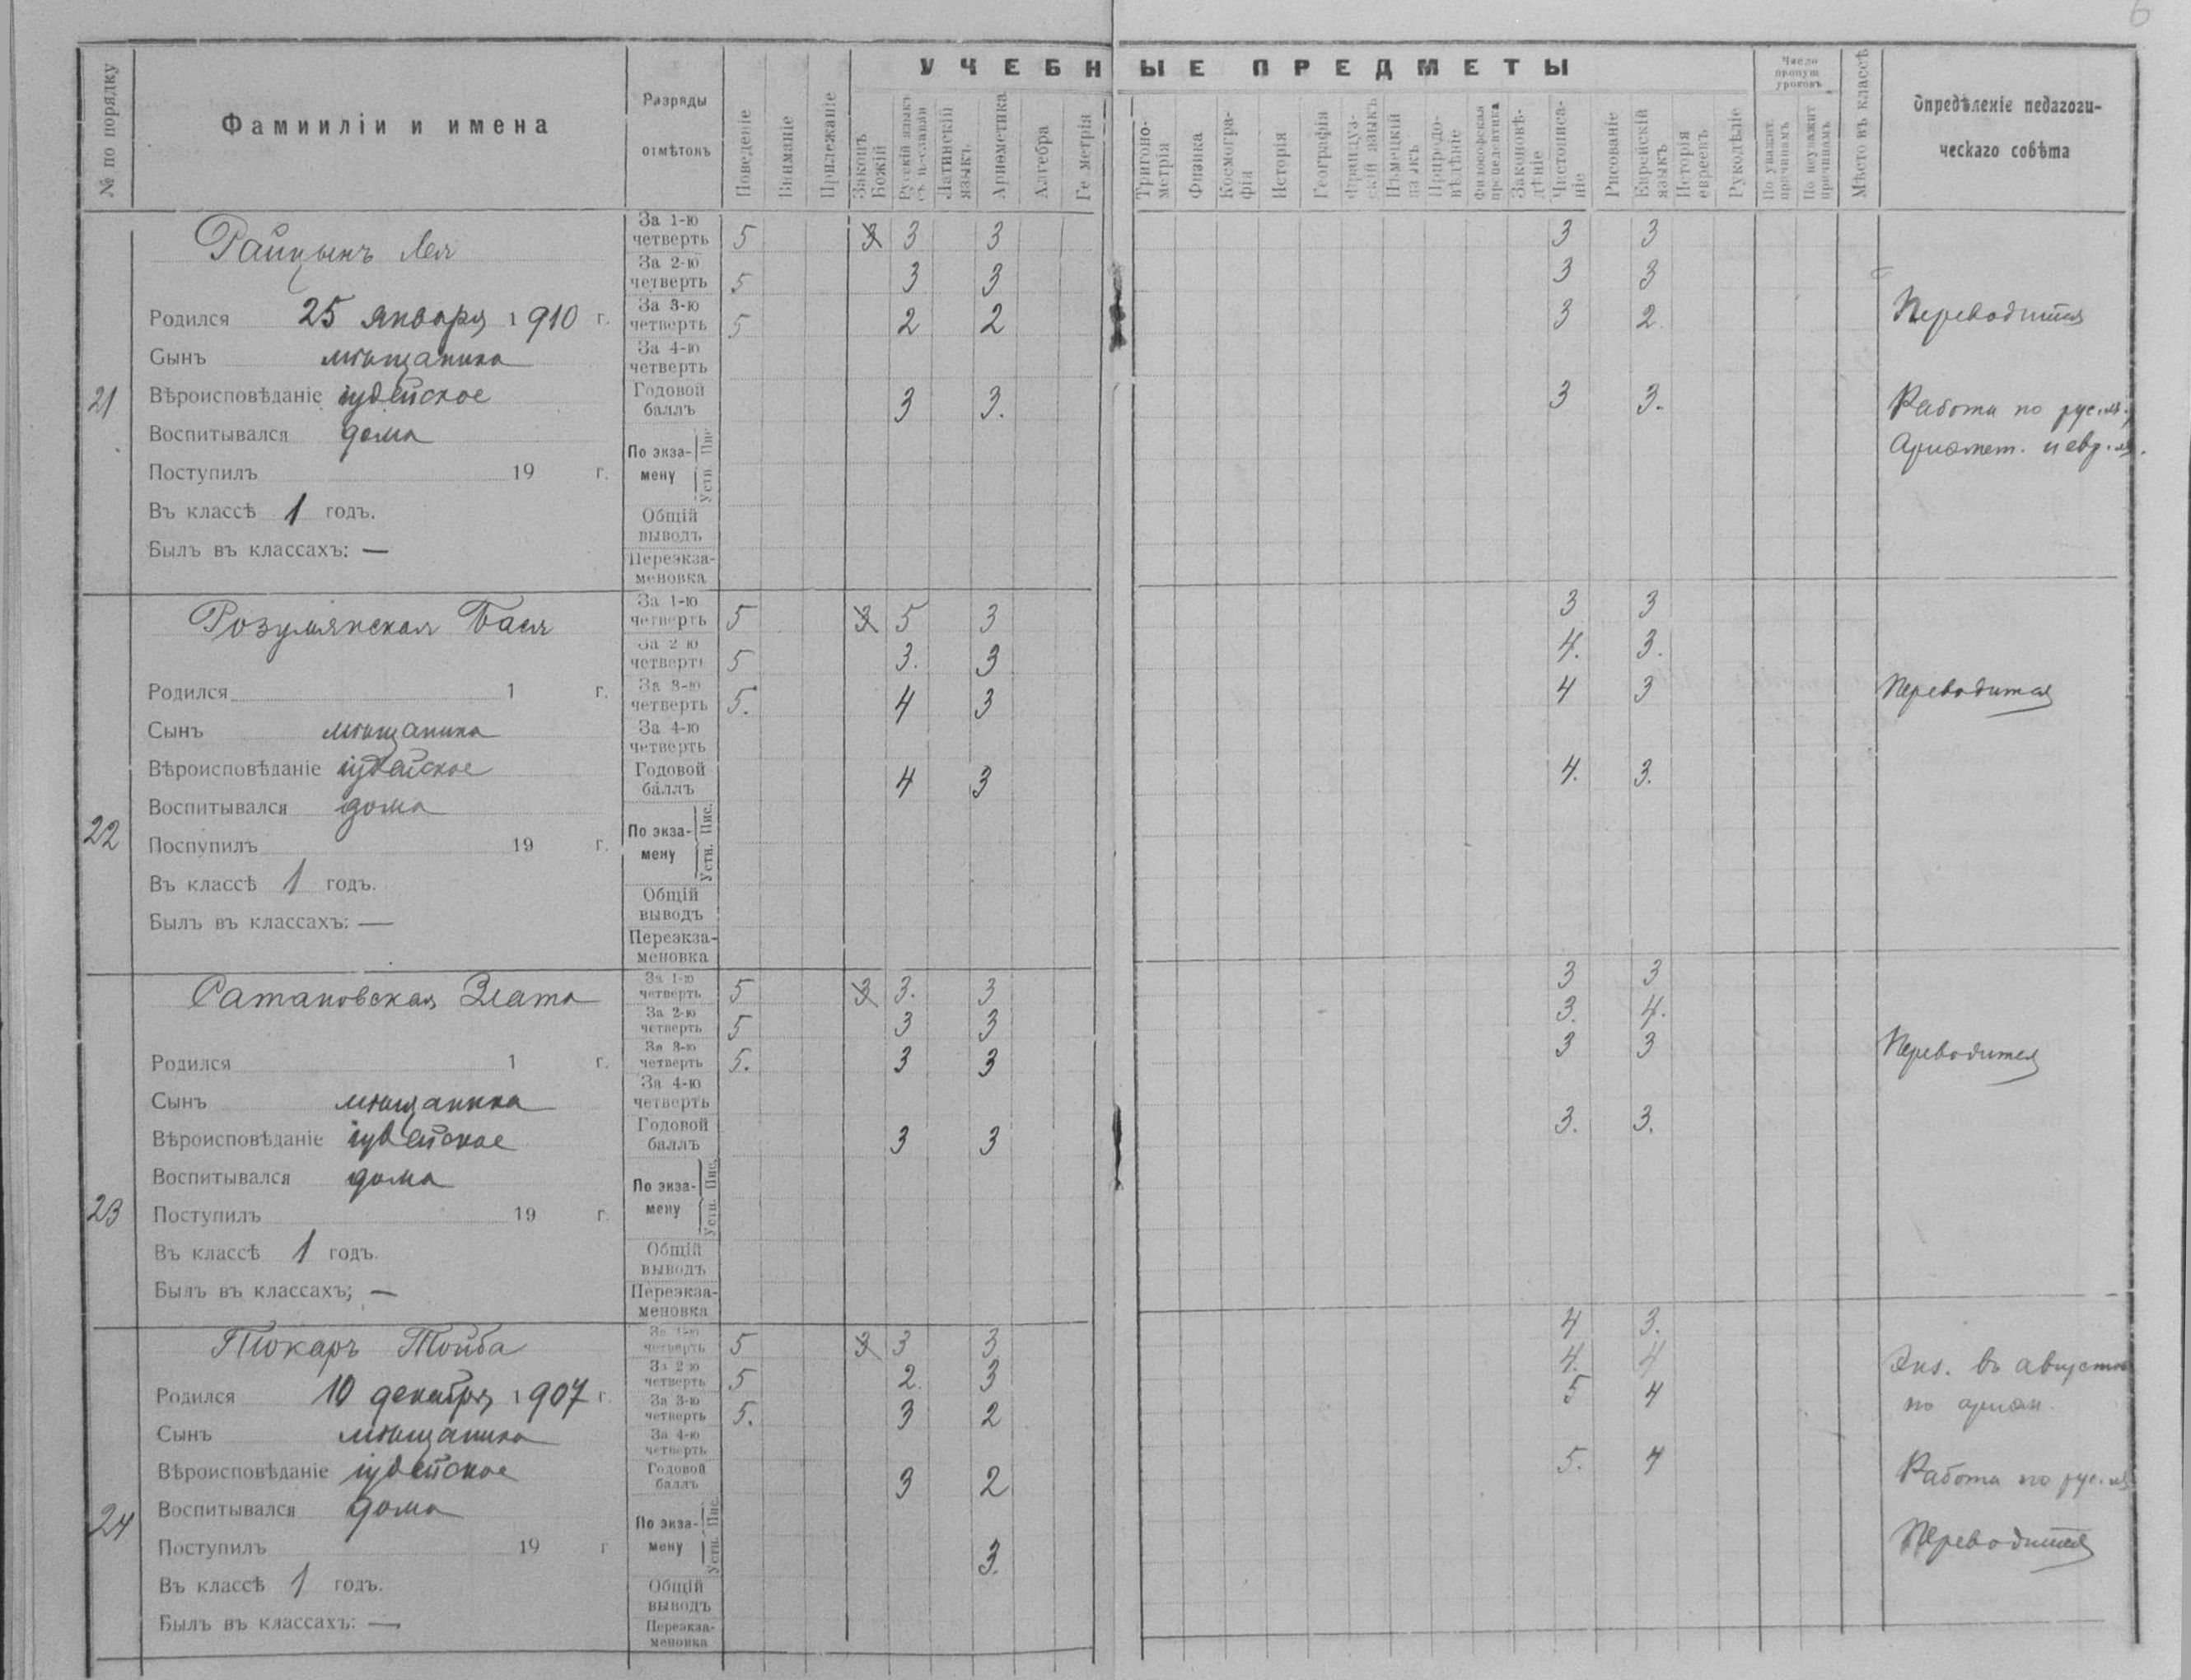 6
УЧЕБНЫЕ ПРЕДМЕТЫ
№ по порядку
Фамииліи и имена
Разряды отмѣтокъ
Поведеніе
Вниманіе
Прилежаніе
Законъ Божій
Русскій языкъ съ ц-славян
Латинскій языкъ
Ариѳметика
Алгебра
Ге метрія
Тригоно-метрія
Физика
Космогра-фія
Исторія
Географія
Француз-скій языкъ
Нѣмецкій языкъ
Природо-вѣдѣніе
Философская пропедевтика
Законовѣ-дѣніе
Чистописа-ніе
Рисованіе
Еврейскій языкъ
Исторія евреевъ
Рукодѣліе
Число пропущ уроковъ
По уважит. причинамъ
По неуважит причинамъ
Мѣсто въ классѣ
Опредѣленіе педагоги-
ческаго совѣта
21
Райцынъ Лея
Родился 25 января 1910 г.
Сынъ мѣщанина
Вѣроисповѣданіе іудейское
Воспитывался дома
Поступилъ 19 г.
Въ классѣ 1 годъ.
Былъ въ классахъ: —
За 1-ю четверть 5 3 3 3 3 3
За 2-ю четверть 5 3 3 3 3
За 3-ю четверть 5 2 2 3 2
За 4-ю четверть
Годовой баллъ 3 3. 3 3.
По экза-мену Пис Устн
Общій выводъ
Переэкза-меновка
Переводится
Работа по рус. яз.,
Ариѳмет. и евр. яз.
22
Розумянская Бася
Родился 1 г.
Сынъ мѣщанина
Вѣроисповѣданіе іудейское
Воспитывался дома
Поспупилъ 19 г.
Въ классѣ 1 годъ.
Былъ въ классахъ: —
За 1-ю четверть 5 3 5 3 3 3
За 2 ю четверть 5 3. 3 4. 3.
За 3-ю четверть 5. 4 3 4 3
За 4-ю четверть
Годовой баллъ 4 3 4. 3.
По экза-мену Пис. Устн.
Общій выводъ
Переэкза-меновка
Переводится
23
Сатановская Злата
Родился 1 г.
Сынъ мѣщанина
Вѣроисповѣданіе іудейское
Воспитывался дома
Поступилъ 19 г.
Въ классѣ 1 годъ.
Былъ въ классахъ; —
За 1-ю четверть 5 3 3. 3 3 3
За 2-ю четверть 5 3 3 3. 4.
За 3-ю четверть 5. 3 3 3 3
За 4-ю четверть
Годовой баллъ 3 3 3. 3.
По экза-мену Пис. Устн.
Общій выводъ
Переэкза-меновка
Переводится
24
Токаръ Тойба
Родился 10 декабря 1907 г
Сынъ мѣщанина
Вѣроисповѣданіе іудейское
Воспитывался дома
Поступилъ 19 г
Въ классѣ 1 годъ.
Былъ въ классахъ: —
За 1-ю четверть 5 3 3 3 4 3.
За 2 ю четверть 5 2. 3 4. 4
За 3-ю четверть 5. 3 2 5 4
За 4-ю четверть
Годовой баллъ 3 2 5. 4
По экза-мену Пис. Устн. 3.
Общій выводъ
Переэкза-меновка
Экз. въ августѣ
по ариѳм.
Работа по рус. яз.
Переводится